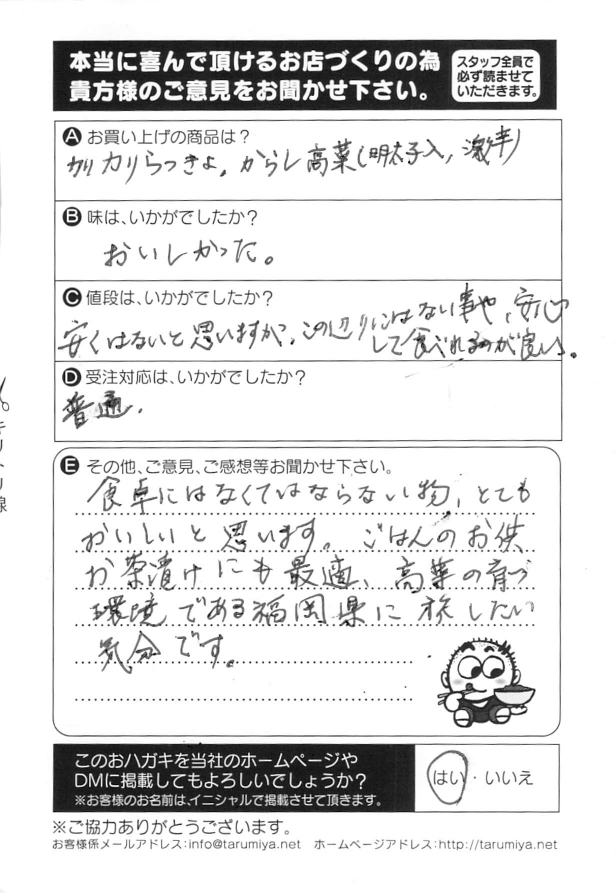 本当に喜んで頂けるお店づくりの為
貴方様のご意見をお聞かせ下さい。
スタッフ全員で
必ず読ませて
いただきます。
A お買い上げの商品は?
カリカリらっきょ。からし高菜(明太子入, 激辛)
B 味は、いかがでしたか?
おいしかった。
C 値段は、いかがでしたか?
安くはないと思いますが、この辺りにはない事や、安心
して食べれるのが良い。
D 受注対応は、いかがでしたか?
普通.
E その他、ご意見、ご感想等お聞かせ下さい。
食卓にはなくてはならない物、とても
おいしいと思います。ごはんのお供
お茶漬けにも最適、高菜の育つ
環境である福岡県に旅したい
気分です。
このおハガキを当社のホームページや
DMに掲載してもよろしいでしょうか?
※お客様のお名前は、イニシャルで掲載させて頂きます。
はい・いいえ
※ご協力ありがとうございます。
お客様係メールアドレス:info@tarumiya.net ホームページアドレス:http://tarumiya.net
キリトリ線